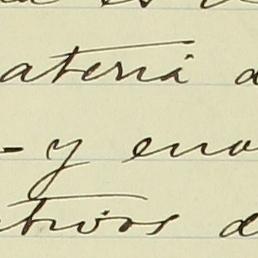 ateria d
- y eno
tivos d